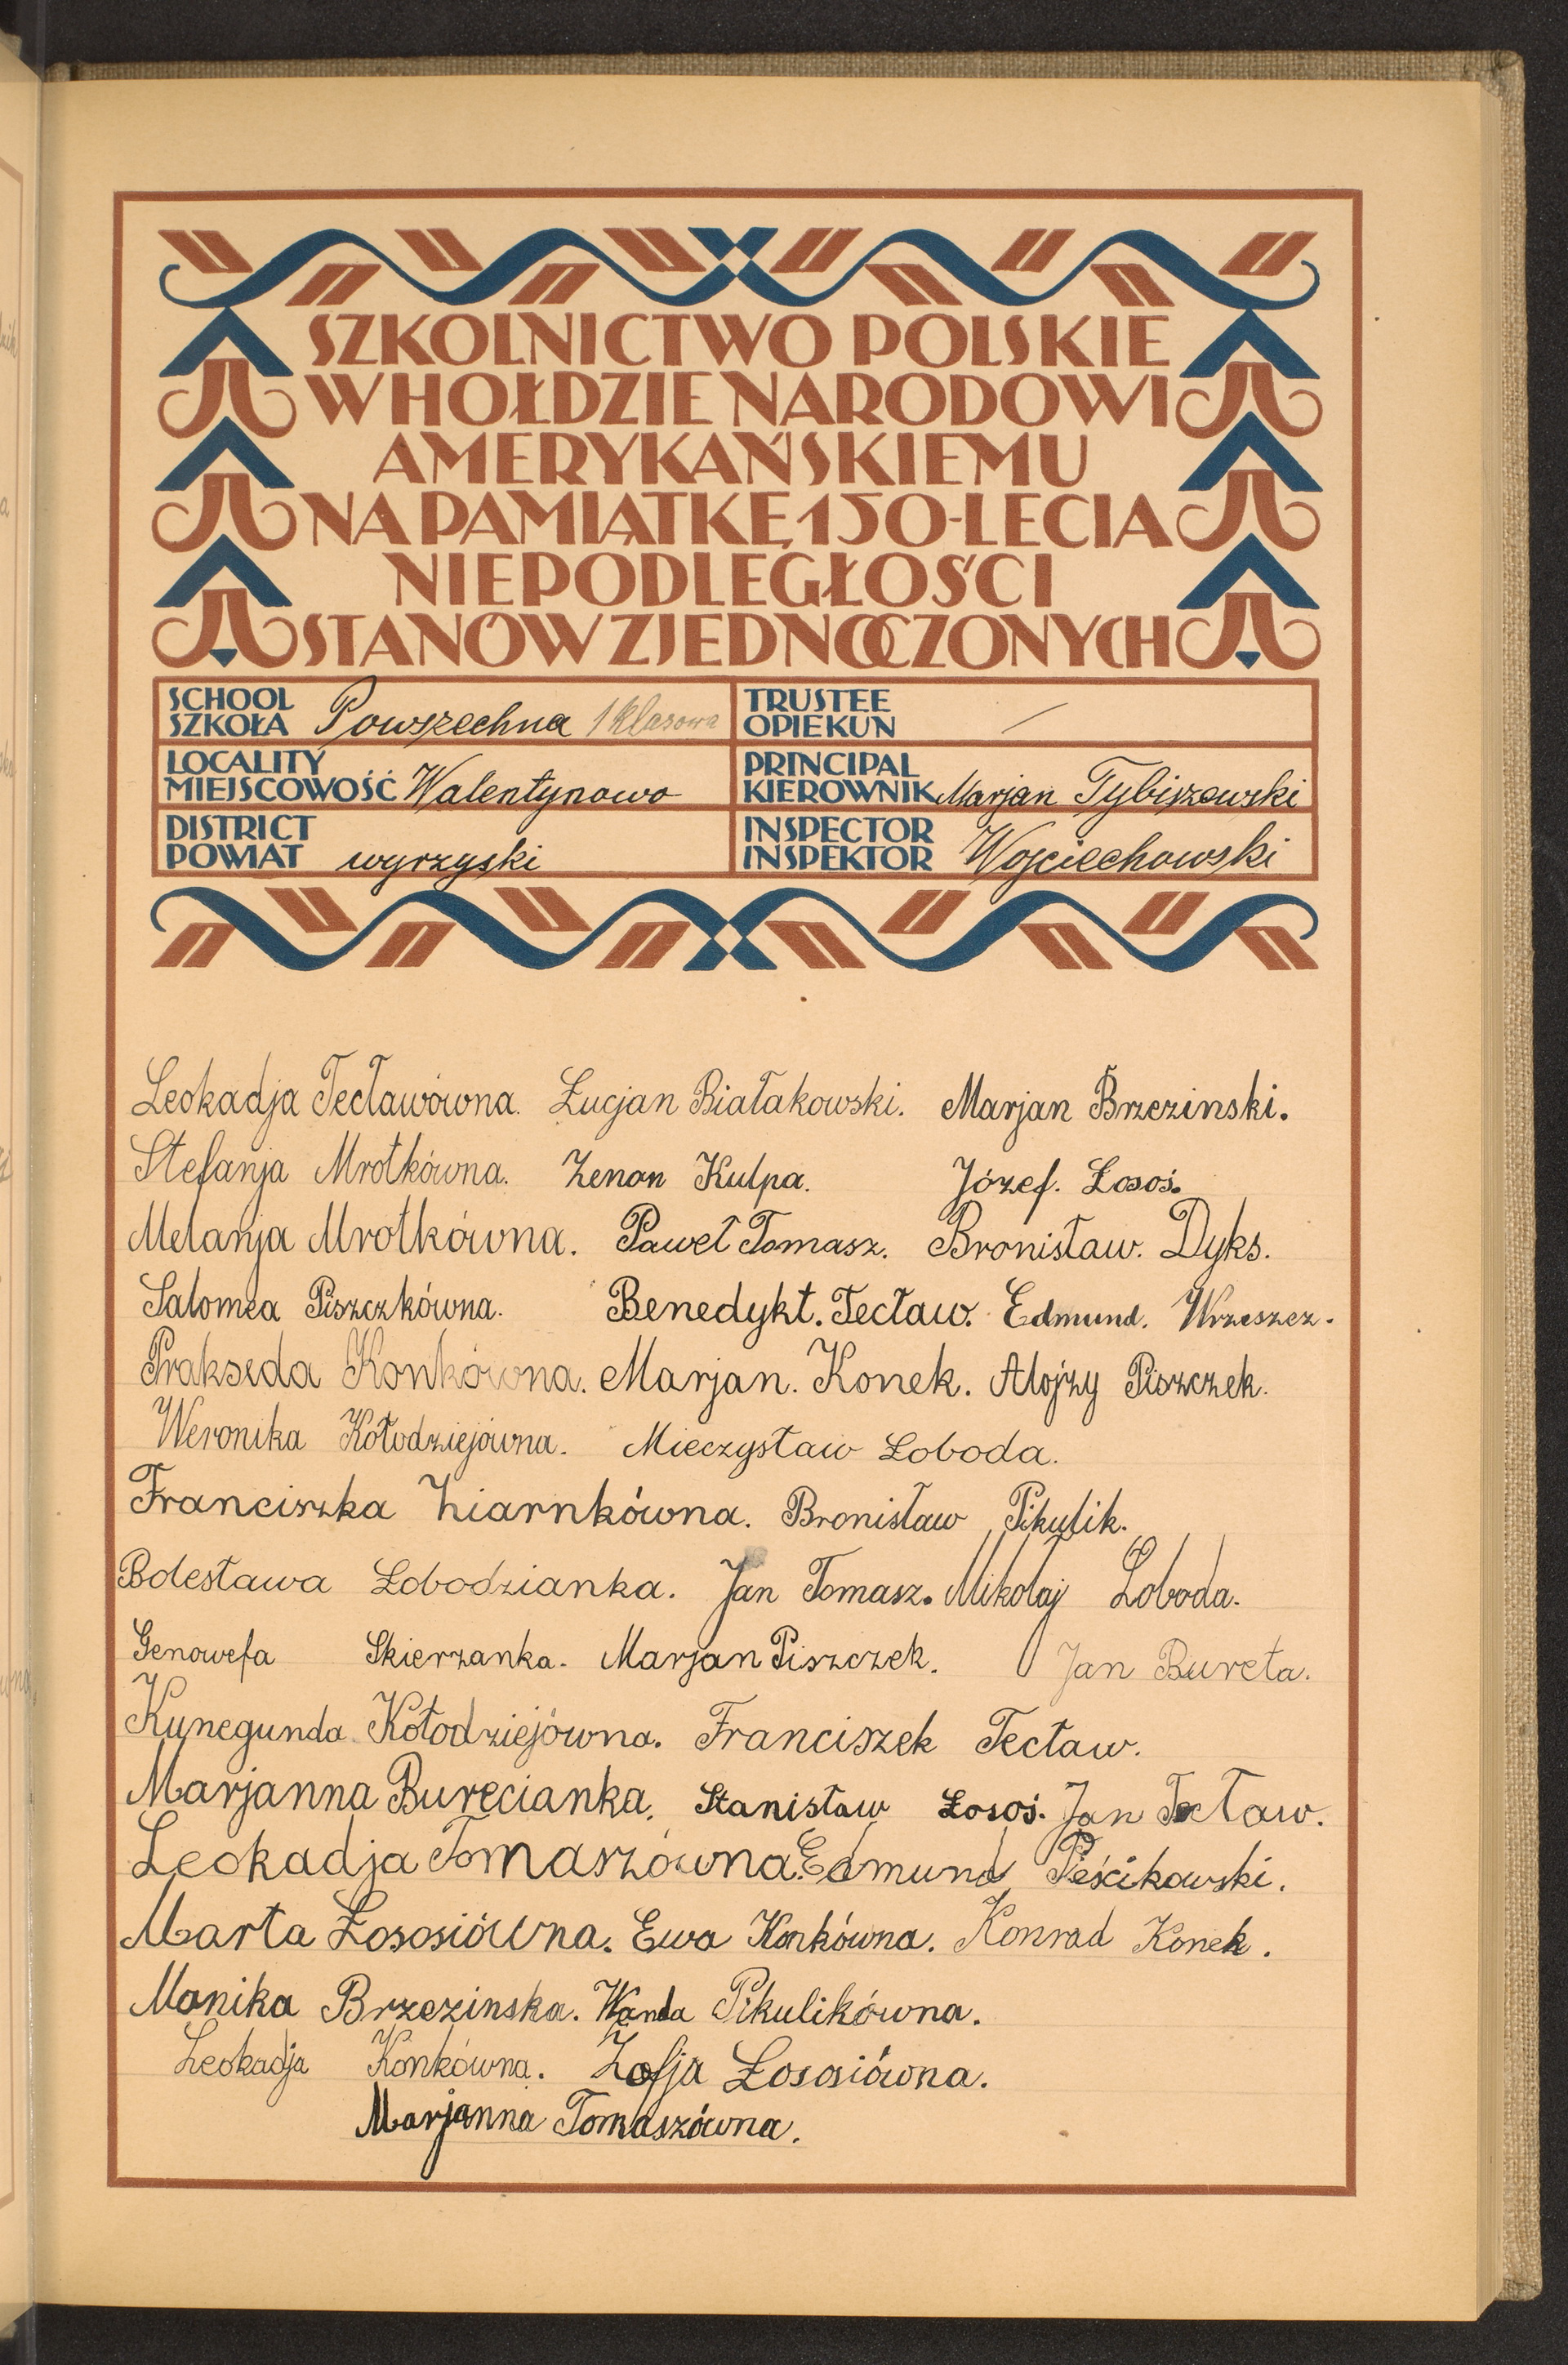 SZKOLNICTWO POLSKIE
W HOŁDZIE NARODOWI
AMERYKAŃSKIEMU
NA PAMIĄTKĘ 150-LECIA
NIEPODLEGŁOŚCI
STANÓW ZJEDNOCZONYCH
SCHOOL SZKOŁA Powszechna 1 klasowa TRUSTEE OPIEKUN —
LOCALITY MIEJSCOWOŚĆ Walentynowo PRINCIPAL KIEROWNIK Marjan Tybiszewski
DISTRICT POWIAT wyrzyski INSPECTOR INSPEKTOR Wojciechowski
Leokadja Tecławówna. Łucjan Białakowski. Marjan Brzezinski.
Stefanja Mrotkówna. Zenon Kulpa. Józef. Łosoś.
Melanja Mrotkówna. Paweł Tomasz. Bronisław. Dyks.
Salomea Piszczkówna. Benedykt. Tecław. Edmund. Wrzeszcz.
Prakseda Konkówna. Marjan. Konek. Alojzy Piszczek.
Weronika Kołodziejówna. Mieczysław Łoboda.
Franciszka Ziarnkówna. Bronisław Pikulik.
Bolesława Łobodzianka. Jan Tomasz. Mikołaj Łoboda.
Genowefa Skierzanka. Marjan Piszczek. Jan Bureta.
Kunegunda Kołodziejówna. Franciszek Tecław.
Marjanna Burecianka. Stanisław Łosoś. Jan Tecław.
Leokadja Tomaszówna. Edmund Pieścikowski.
Marta Łososiówna. Ewa Konkówna. Konrad Konek.
Monika Brzezinska. Wanda Pikulikówna.
Leokadja Konkówna. Zofja Łososiówna.
Marjanna Tomaszówna.